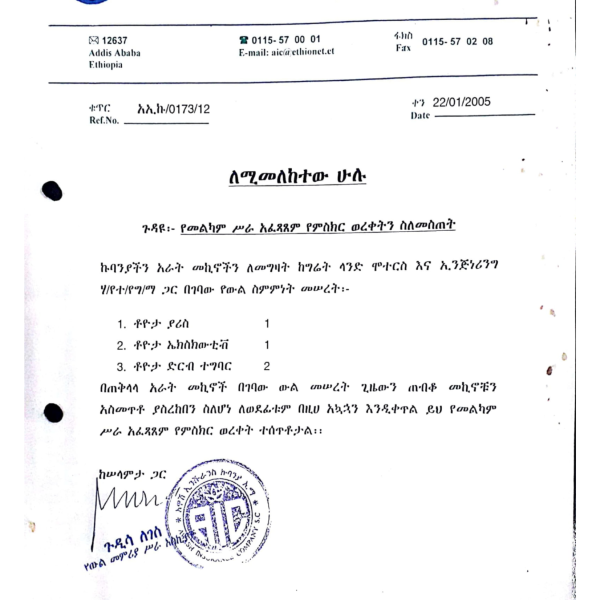 ✉ 12637
Addis Ababa
Ethiopia
☎ 0115- 57 00 01
E-mail: aic@ethionet.et
ፋክስ
Fax 0115- 57 02 08
ቁጥር አኢኩ/0173/12
Ref.No.
ቀን 22/01/2005
Date
ለሚመለከተው ሁሉ
ጉዳዩ፡- የመልካም ሥራ አፈጻጸም የምስክር ወረቀትን ስለመስጠት
ኩባንያችን አራት መኪኖችን ለመግዛት ከግሬት ላንድ ሞተርስ እና ኢንጅነሪንግ
ሃ/የተ/የግ/ማ ጋር በገባው የውል ስምምነት መሠረት፡-
1. ቶዮታ ያሪስ 1
2. ቶዮታ ኤክስክውቲቭ 1
3. ቶዮታ ድርብ ተግባር 2
በጠቅላላ አራት መኪኖች በገባው ውል መሠረት ጊዜውን ጠብቆ መኪኖቹን
አስመጥቶ ያስረከበን ስለሆነ ለወደፊቱም በዚሀ አኳኋን እንዲቀጥል ይህ የመልካም
ሥራ አፈጻጸም የምስክር ወረቀት ተሰጥቶታል፡፡
ከሠላምታ ጋር
አዋሽ ኢንሹራንስ ኩባንያ አ.ማ
AIC
INSURANCE COMPANY S.C
ጉዲሳ ለገሰ
የውል መምሪያ ሥራ